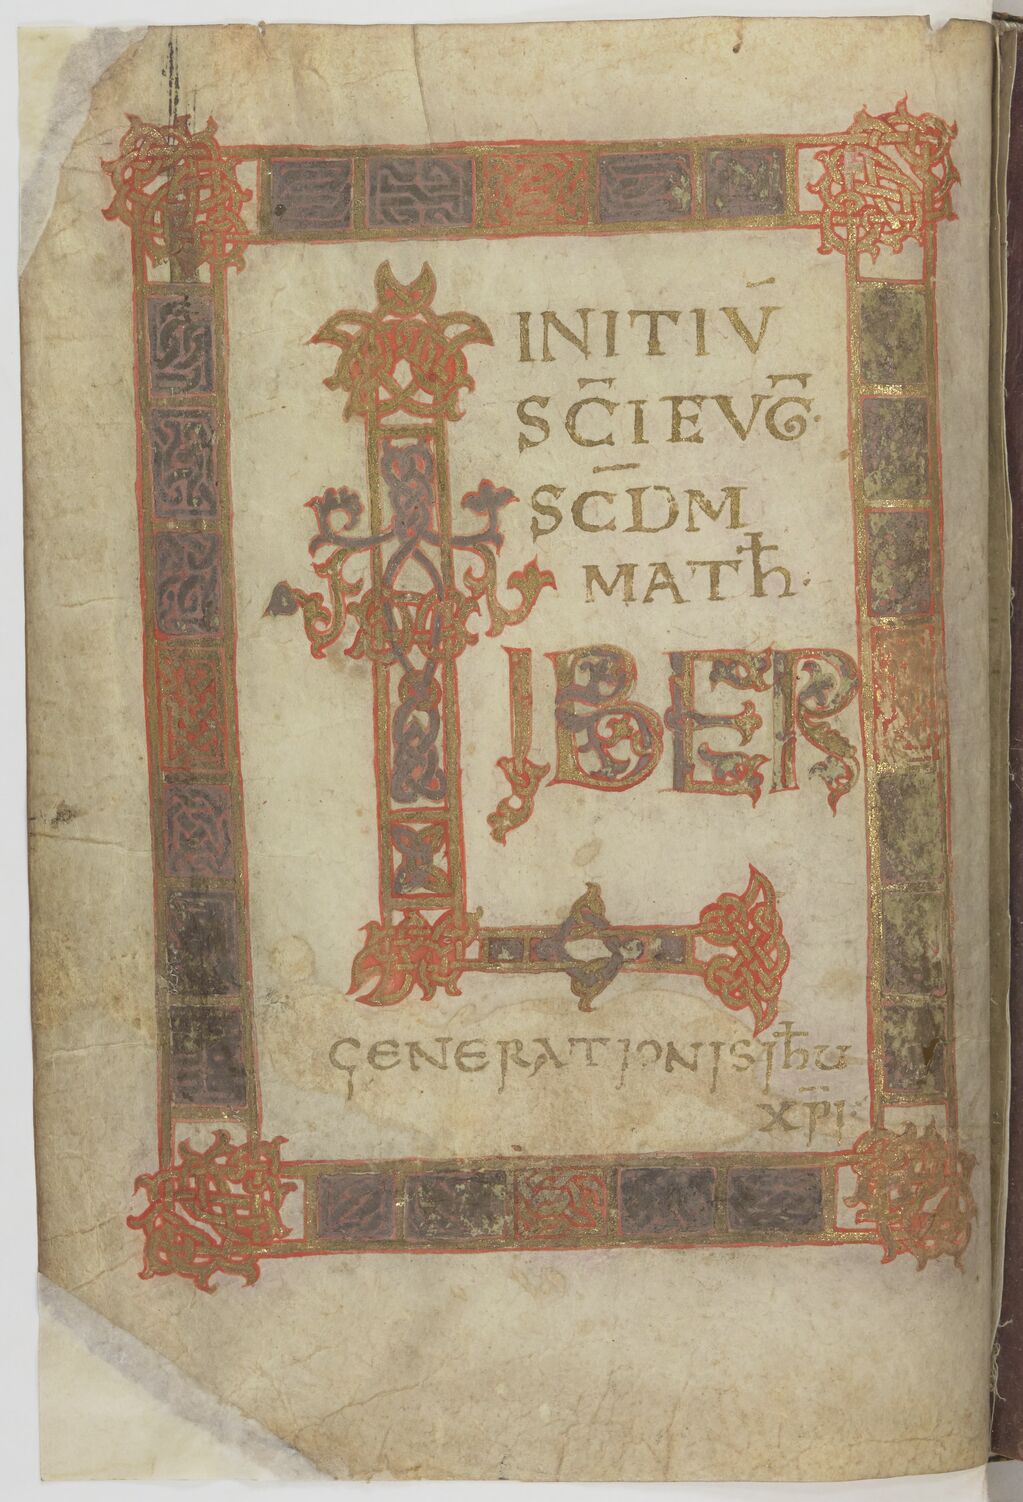 INITIŪ
SC̄I EVḠ·
SC̄DM
MATħ·
LIBER
GENERATIONIS IħU
XP̄I·